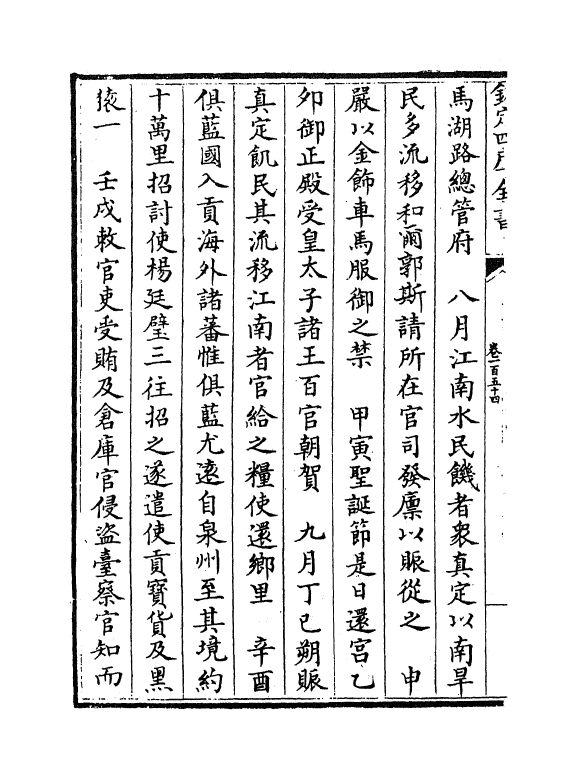 欽定四庫全書
卷一百五十四
馬湖路總管府　八月江南水民饑者衆真定以南旱
民多流移和爾郭斯請所在官司發廩以賑從之　申
嚴以金飾車馬服御之禁　甲寅聖誕節是日還宫乙
夘御正殿受皇太子諸王百官朝賀　九月丁巳朔賑
真定飢民其流移江南者官給之糧使還鄉里　辛酉
俱藍國入貢海外諸蕃惟俱藍尤逺自泉州至其境約
十萬里招討使楊廷璧三往招之遂遣使貢寶貨及黑
猿一　壬戌敕官吏受賄及倉庫官侵盜臺察官知而